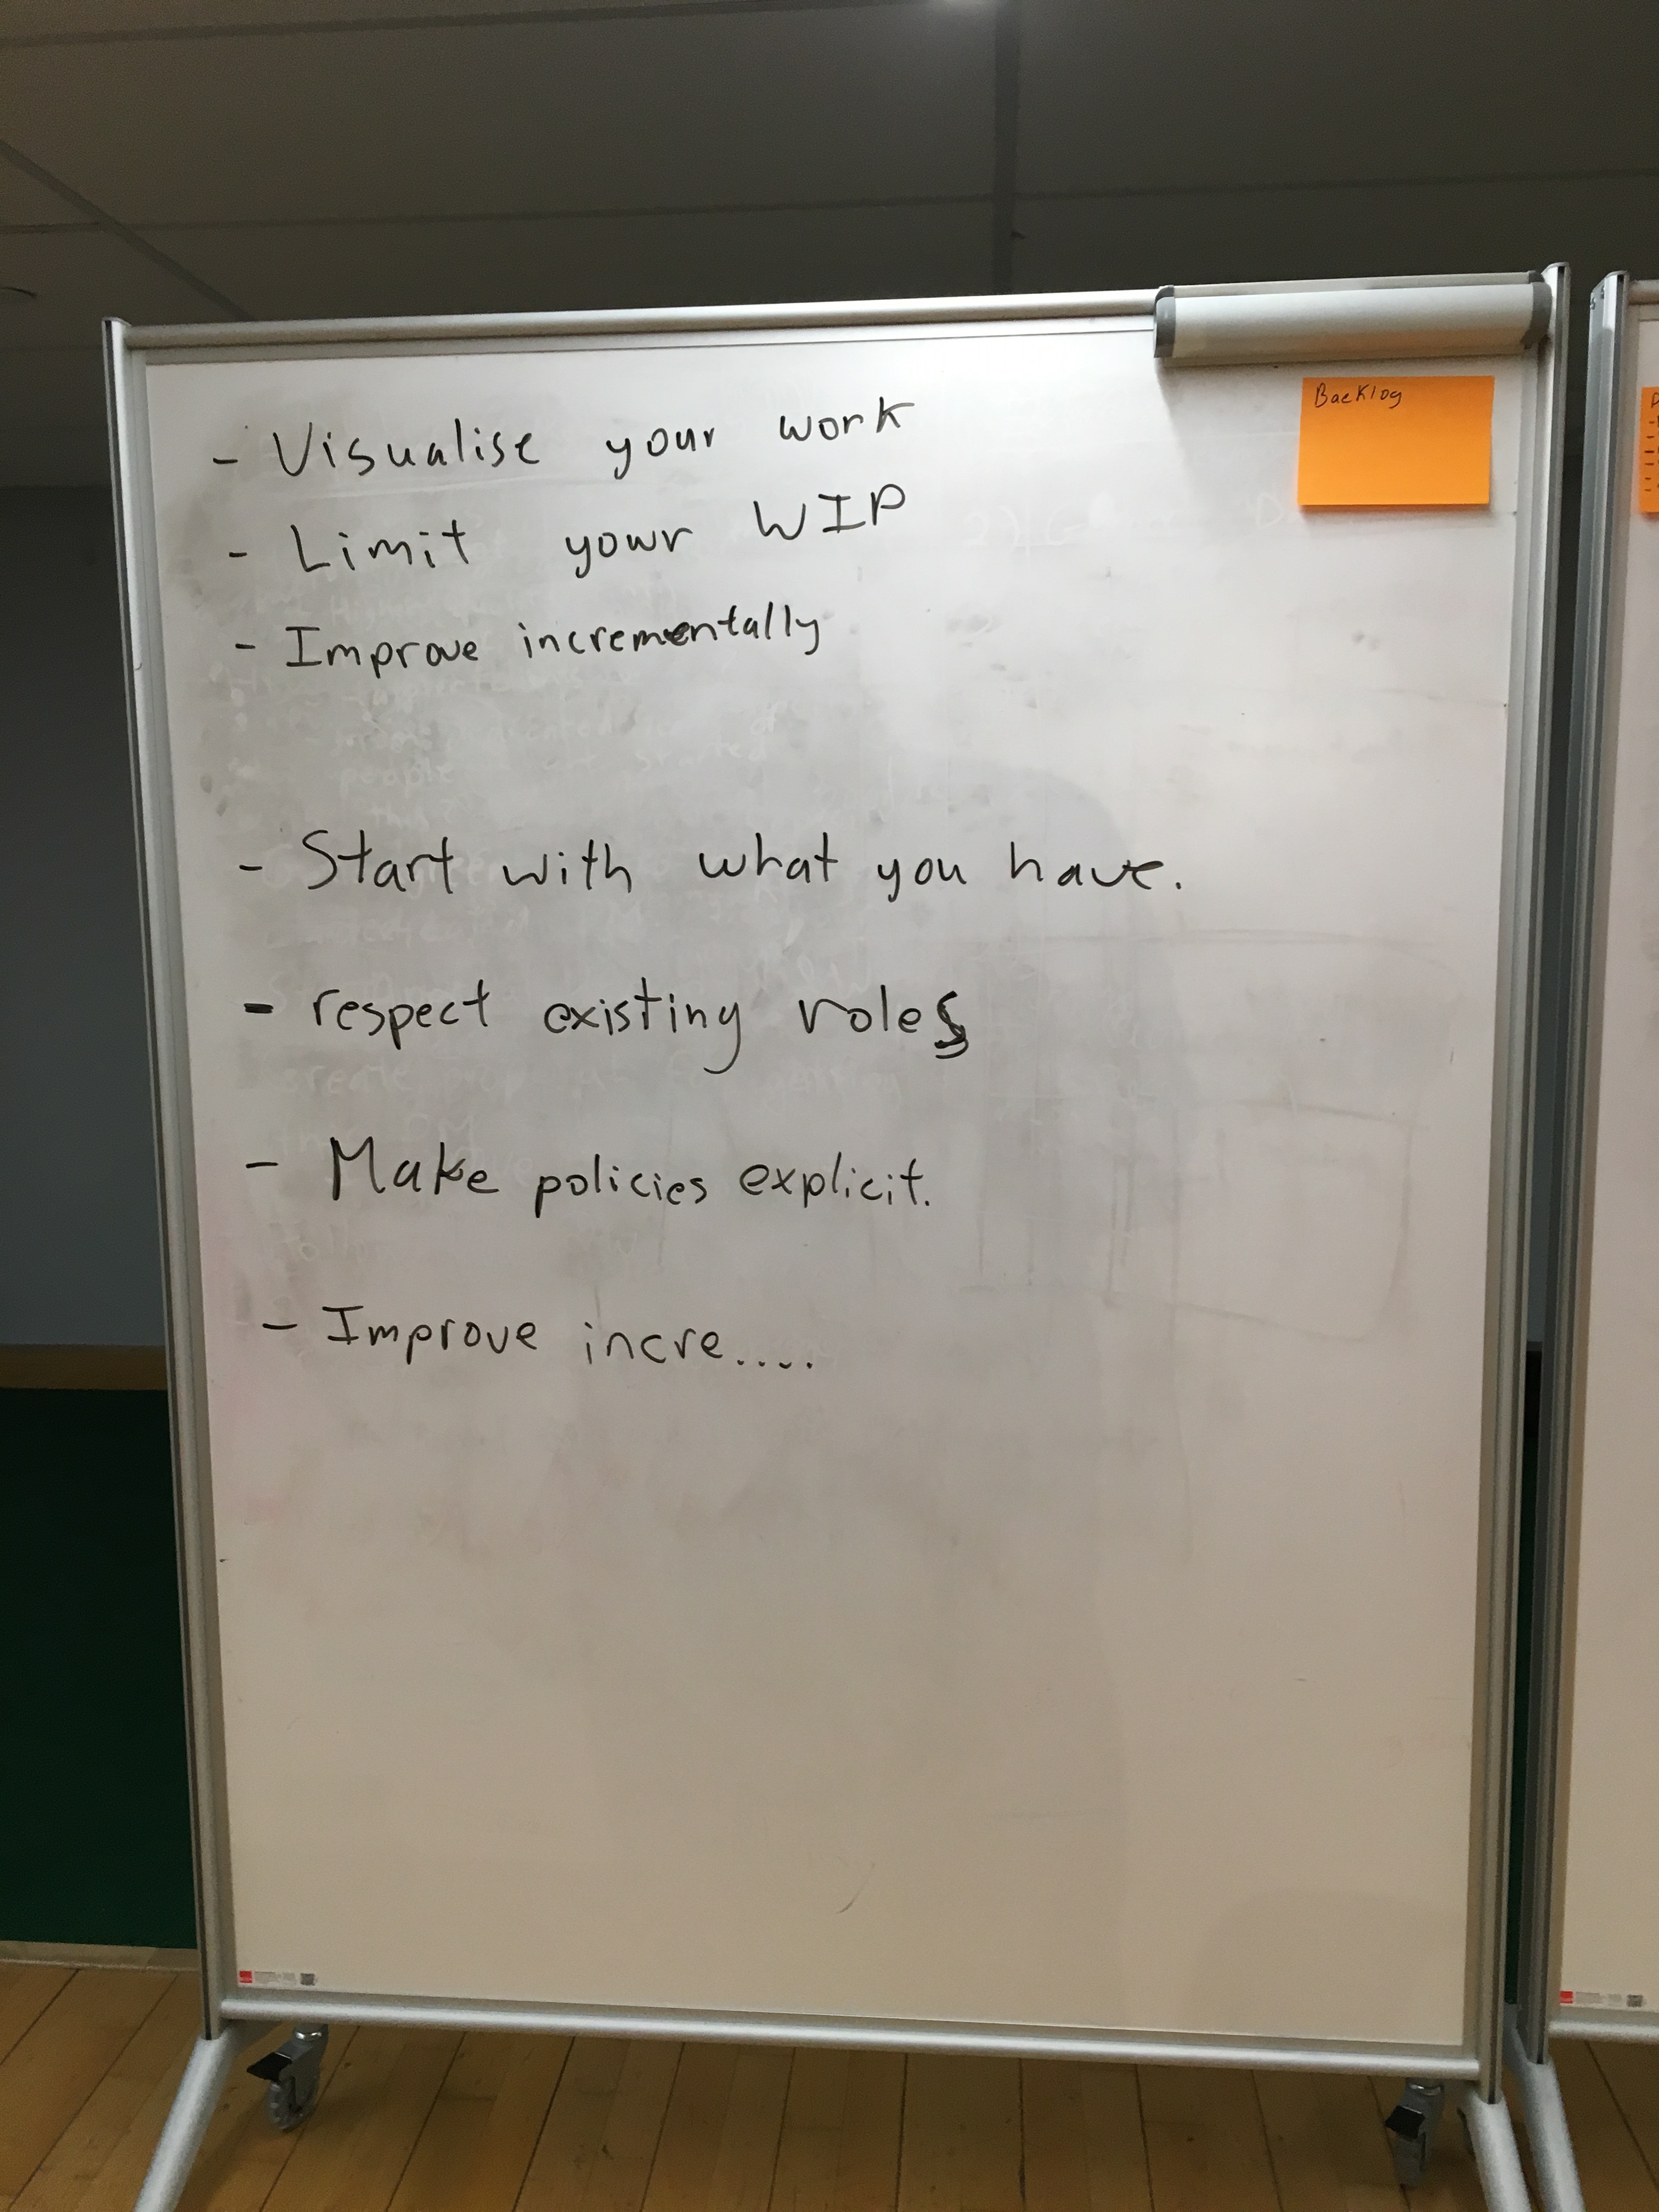 - Visualise your work
- Limit your WIP
- Improve incrementally
- Start with what you have.
- respect existing roles
- Make policies explicit.
- Improve incre....
Backlog